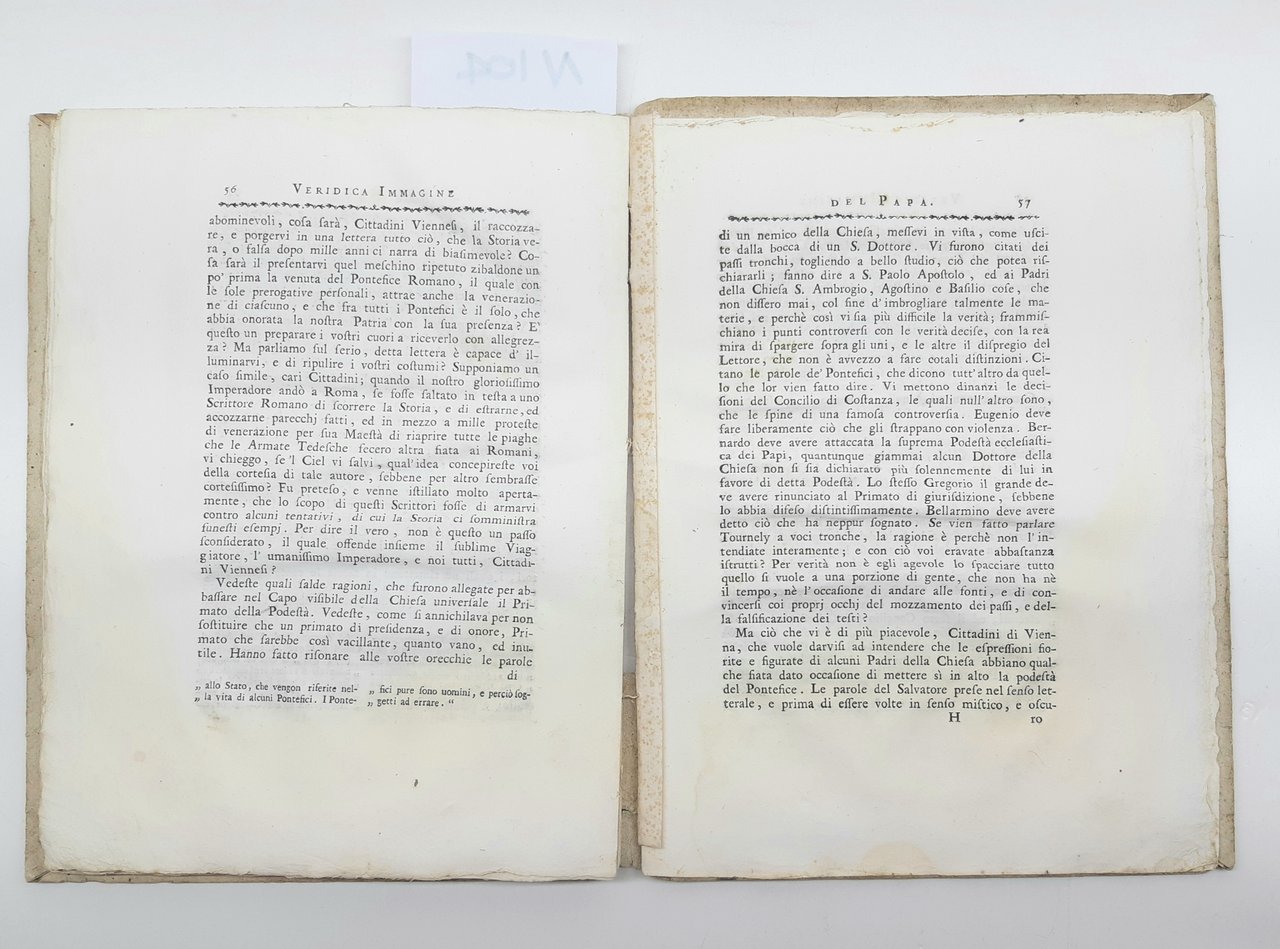 N 104
56 VERIDICA IMMAGINE
abominevoli, coſa ſarà, Cittadini Vienneſi, il raccozza-
re, e porgervi in una lettera tutto ciò, che la Storia ve-
ra, o falſa dopo mille anni ci narra di biaſimevole? Co-
ſa ſarà il preſentarvi quel meſchino ripetuto zibaldone un
po' prima la venuta del Pontefice Romano, il quale con
le ſole prerogative perſonali, attrae anche la venerazio-
ne di ciaſcuno, e che fra tutti i Pontefici è il ſolo, che
abbia onorata la noſtra Patria con la ſua preſenza? E'
queſto un preparare i voſtri cuori a riceverlo con allegrez-
za? Ma parliamo ſul ſerio, detta lettera è capace d' il-
luminarvi, e di ripulire i voſtri coſtumi? Supponiamo un
caſo ſimile, cari Cittadini; quando il noſtro glorioſiſſimo
Imperadore andò a Roma, ſe foſſe ſaltato in teſta a uno
Scrittore Romano di ſcorrere la Storia, e di eſtrarne, ed
accozzarne parecchj fatti, ed in mezzo a mille proteſte
di venerazione per ſua Maeſtà di riaprire tutte le piaghe
che le Armate Tedeſche fecero altra fiata ai Romani,
vi chieggo, ſe 'l Ciel vi ſalvi, qual' idea concepireſte voi
della corteſia di tale autore, ſebbene per altro ſembraſſe
corteſiſſimo? Fu preteſo, e venne iſtillato molto aperta-
mente, che lo ſcopo di queſti Scrittori foſſe di armarvi
contro alcuni tentativi, di cui la Storia ci ſomminiſtra
funeſti eſempj. Per dire il vero, non è queſto un paſſo
ſconſiderato, il quale offende inſieme il ſublime Viag-
giatore, l' umaniſſimo Imperadore, e noi tutti, Cittadi-
ni Vienneſi?
Vedeſte quali ſalde ragioni, che furono allegate per ab-
baſſare nel Capo viſibile della Chieſa univerſale il Pri-
mato della Podeſtà. Vedeſte, come ſi annichilava per non
ſoſtituire che un primato di preſidenza, e di onore, Pri-
mato che ſarebbe così vacillante, quanto vano, ed inu-
tile. Hanno fatto riſonare alle voſtre orecchie le parole
di
„ allo Stato, che vengon riferite nel-
„ la vita di alcuni Pontefici. I Ponte-
„ fici pure ſono uomini, e perciò ſog-
„ getti ad errare. “
DEL PAPA. 57
di un nemico della Chieſa, meſſevi in viſta, come uſci-
te dalla bocca di un S. Dottore. Vi furono citati dei
paſſi tronchi, togliendo a bello ſtudio, ciò che potea riſ-
chiararli; fanno dire a S. Paolo Apoſtolo, ed ai Padri
della Chieſa S. Ambrogio, Agoſtino e Baſilio coſe, che
non diſſero mai, col fine d' imbrogliare talmente le ma-
terie, e perchè così vi ſia più difficile la verità; frammiſ-
chiano i punti controverſi con le verità deciſe, con la rea
mira di ſpargere ſopra gli uni, e le altre il diſpregio del
Lettore, che non è avvezzo a fare cotali diſtinzioni. Ci-
tano le parole de' Pontefici, che dicono tutt' altro da quel-
lo che lor vien fatto dire. Vi mettono dinanzi le deci-
ſioni del Concilio di Coſtanza, le quali null' altro ſono,
che le ſpine di una famoſa controverſia. Eugenio deve
fare liberamente ciò che gli ſtrappano con violenza. Ber-
nardo deve avere attaccata la ſuprema Podeſtà eccleſiaſti-
ca dei Papi, quantunque giammai alcun Dottore della
Chieſa non ſi ſia dichiarato più ſolennemente di lui in
favore di detta Podeſtà. Lo ſteſſo Gregorio il grande de-
ve avere rinunciato al Primato di giuriſdizione, ſebbene
lo abbia difeſo diſtintiſſimamente. Bellarmino deve avere
detto ciò che ha neppur ſognato. Se vien fatto parlare
Tournely a voci tronche, la ragione è perchè non l' in-
tendiate interamente; e con ciò voi eravate abbaſtanza
iſtrutti? Per verità non è egli agevole lo ſpacciare tutto
quello ſi vuole a una porzione di gente, che non ha nè
il tempo, nè l' occaſione di andare alle fonti, e di con-
vincerſi coi proprj occhj del mozzamento dei paſſi, e del-
la falſificazione dei teſti?
Ma ciò che vi è di più piacevole, Cittadini di Vien-
na, che vuole darviſi ad intendere che le eſpreſſioni fio-
rite e figurate di alcuni Padri della Chieſa abbiano qual-
che fiata dato occaſione di mettere sì in alto la podeſtà
del Pontefice. Le parole del Salvatore preſe nel ſenſo let-
terale, e prima di eſſere volte in ſenſo miſtico, e oſcu-
H ro